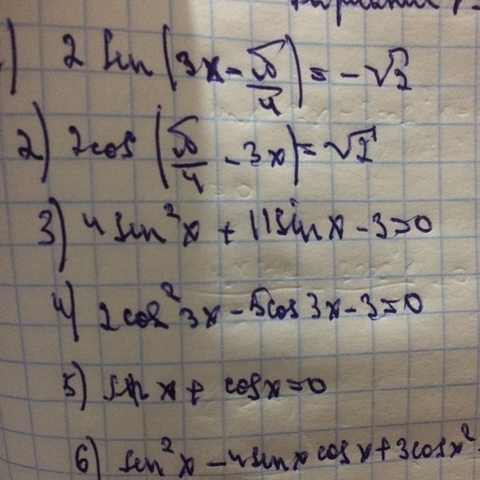 ) 2 sin (3x - π/4) = -√2
2) 2cos (π/4 - 3x) = √2
3) 4sin²x + 11sinx - 3=0
4) 2cos²3x - 5cos3x - 3=0
5) sinx + cosx=0
6) sin²x - 4sinx cosx + 3cosx²